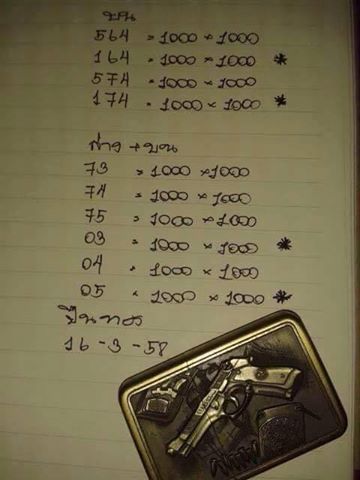 บน
564 = 1000 × 1000
164 = 1000 × 1000 *
574 = 1000 × 1000
174 = 1000 × 1000 *
ล่าง + บน
73 = 1000 × 1000
74 = 1000 × 1000
75 = 1000 × 1000
03 = 1000 × 1000 *
04 = 1000 × 1000
05 = 1000 × 1000 *
ปืนทอง
16 - 3 - 58